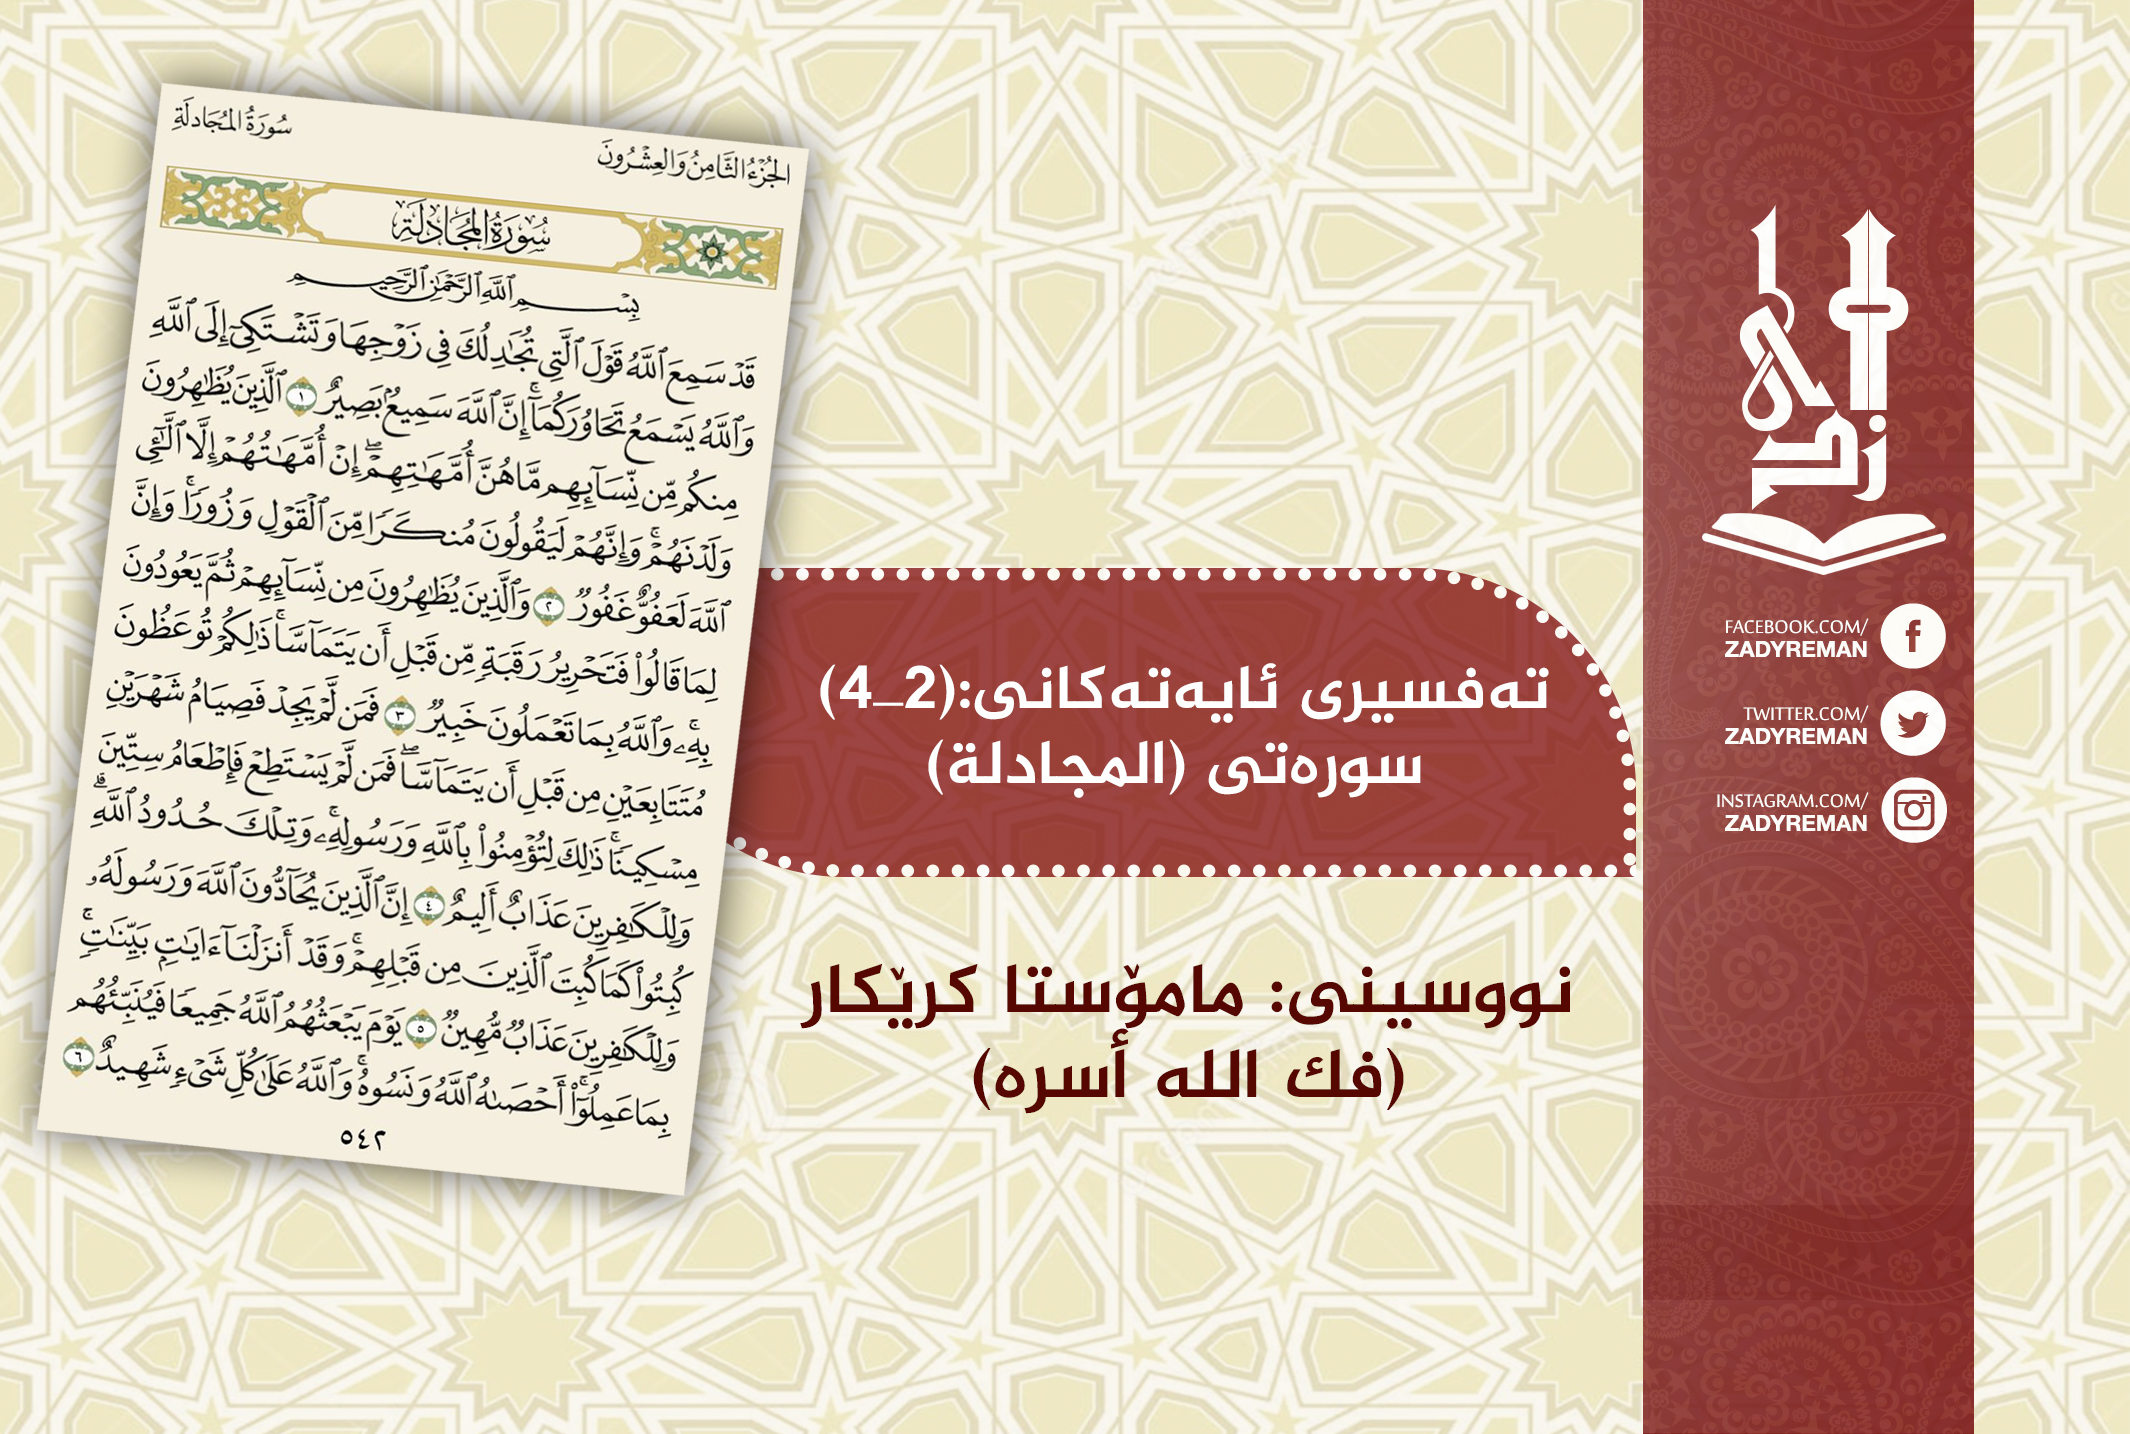 الجُزْءُ الثَّامِنُ وَالعِشْرُونَ
سُورَةُ المُجَادلَةِ
سُورَةُ المُجَادلَةِ
بِسْمِ ٱللَّهِ ٱلرَّحْمَٰنِ ٱلرَّحِيمِ
قَدْ سَمِعَ ٱللَّهُ قَوْلَ ٱلَّتِي تُجَٰدِلُكَ فِي زَوْجِهَا وَتَشْتَكِيٓ إِلَى ٱللَّهِ
وَٱللَّهُ يَسْمَعُ تَحَاوُرَكُمَآۚ إِنَّ ٱللَّهَ سَمِيعُۢ بَصِيرٌ ١ ٱلَّذِينَ يُظَٰهِرُونَ
مِنكُم مِّن نِّسَآئِهِم مَّا هُنَّ أُمَّهَٰتِهِمْۖ إِنْ أُمَّهَٰتُهُمْ إِلَّا ٱلَّٰٓـِٔي
وَلَدْنَهُمْۚ وَإِنَّهُمْ لَيَقُولُونَ مُنكَرًا مِّنَ ٱلْقَوْلِ وَزُورًاۚ وَإِنَّ
ٱللَّهَ لَعَفُوٌّ غَفُورٌ ٢ وَٱلَّذِينَ يُظَٰهِرُونَ مِن نِّسَآئِهِمْ ثُمَّ يَعُودُونَ
لِمَا قَالُوا۟ فَتَحْرِيرُ رَقَبَةٍ مِّن قَبْلِ أَن يَتَمَآسَّاۚ ذَٰلِكُمْ تُوعَظُونَ
بِهِۦۚ وَٱللَّهُ بِمَا تَعْمَلُونَ خَبِيرٌ ٣ فَمَن لَّمْ يَجِدْ فَصِيَامُ شَهْرَيْنِ
مُتَتَابِعَيْنِ مِن قَبْلِ أَن يَتَمَآسَّاۖ فَمَن لَّمْ يَسْتَطِعْ فَإِطْعَامُ سِتِّينَ
مِسْكِينًاۚ ذَٰلِكَ لِتُؤْمِنُوا۟ بِٱللَّهِ وَرَسُولِهِۦۚ وَتِلْكَ حُدُودُ ٱللَّهِۗ
وَلِلْكَٰفِرِينَ عَذَابٌ أَلِيمٌ ٤ إِنَّ ٱلَّذِينَ يُحَآدُّونَ ٱللَّهَ وَرَسُولَهُۥ
كُبِتُوا۟ كَمَا كُبِتَ ٱلَّذِينَ مِن قَبْلِهِمْۚ وَقَدْ أَنزَلْنَآ ءَايَٰتٍۭ بَيِّنَٰتٍۚ
وَلِلْكَٰفِرِينَ عَذَابٌ مُّهِينٌ ٥ يَوْمَ يَبْعَثُهُمُ ٱللَّهُ جَمِيعًا فَيُنَبِّئُهُم
بِمَا عَمِلُوٓا۟ۚ أَحْصَىٰهُ ٱللَّهُ وَنَسُوهُۚ وَٱللَّهُ عَلَىٰ كُلِّ شَىْءٍ شَهِيدٌ ٦
٥٤٢
تەفسیری ئایەتەکانی:(2_4)
سورەتی (المجادلة)
نووسینی: مامۆستا کرێکار
(فك الله أسره)
زادی
FACEBOOK.COM/
ZADYREMAN
TWITTER.COM/
ZADYREMAN
INSTAGRAM.COM/
ZADYREMAN